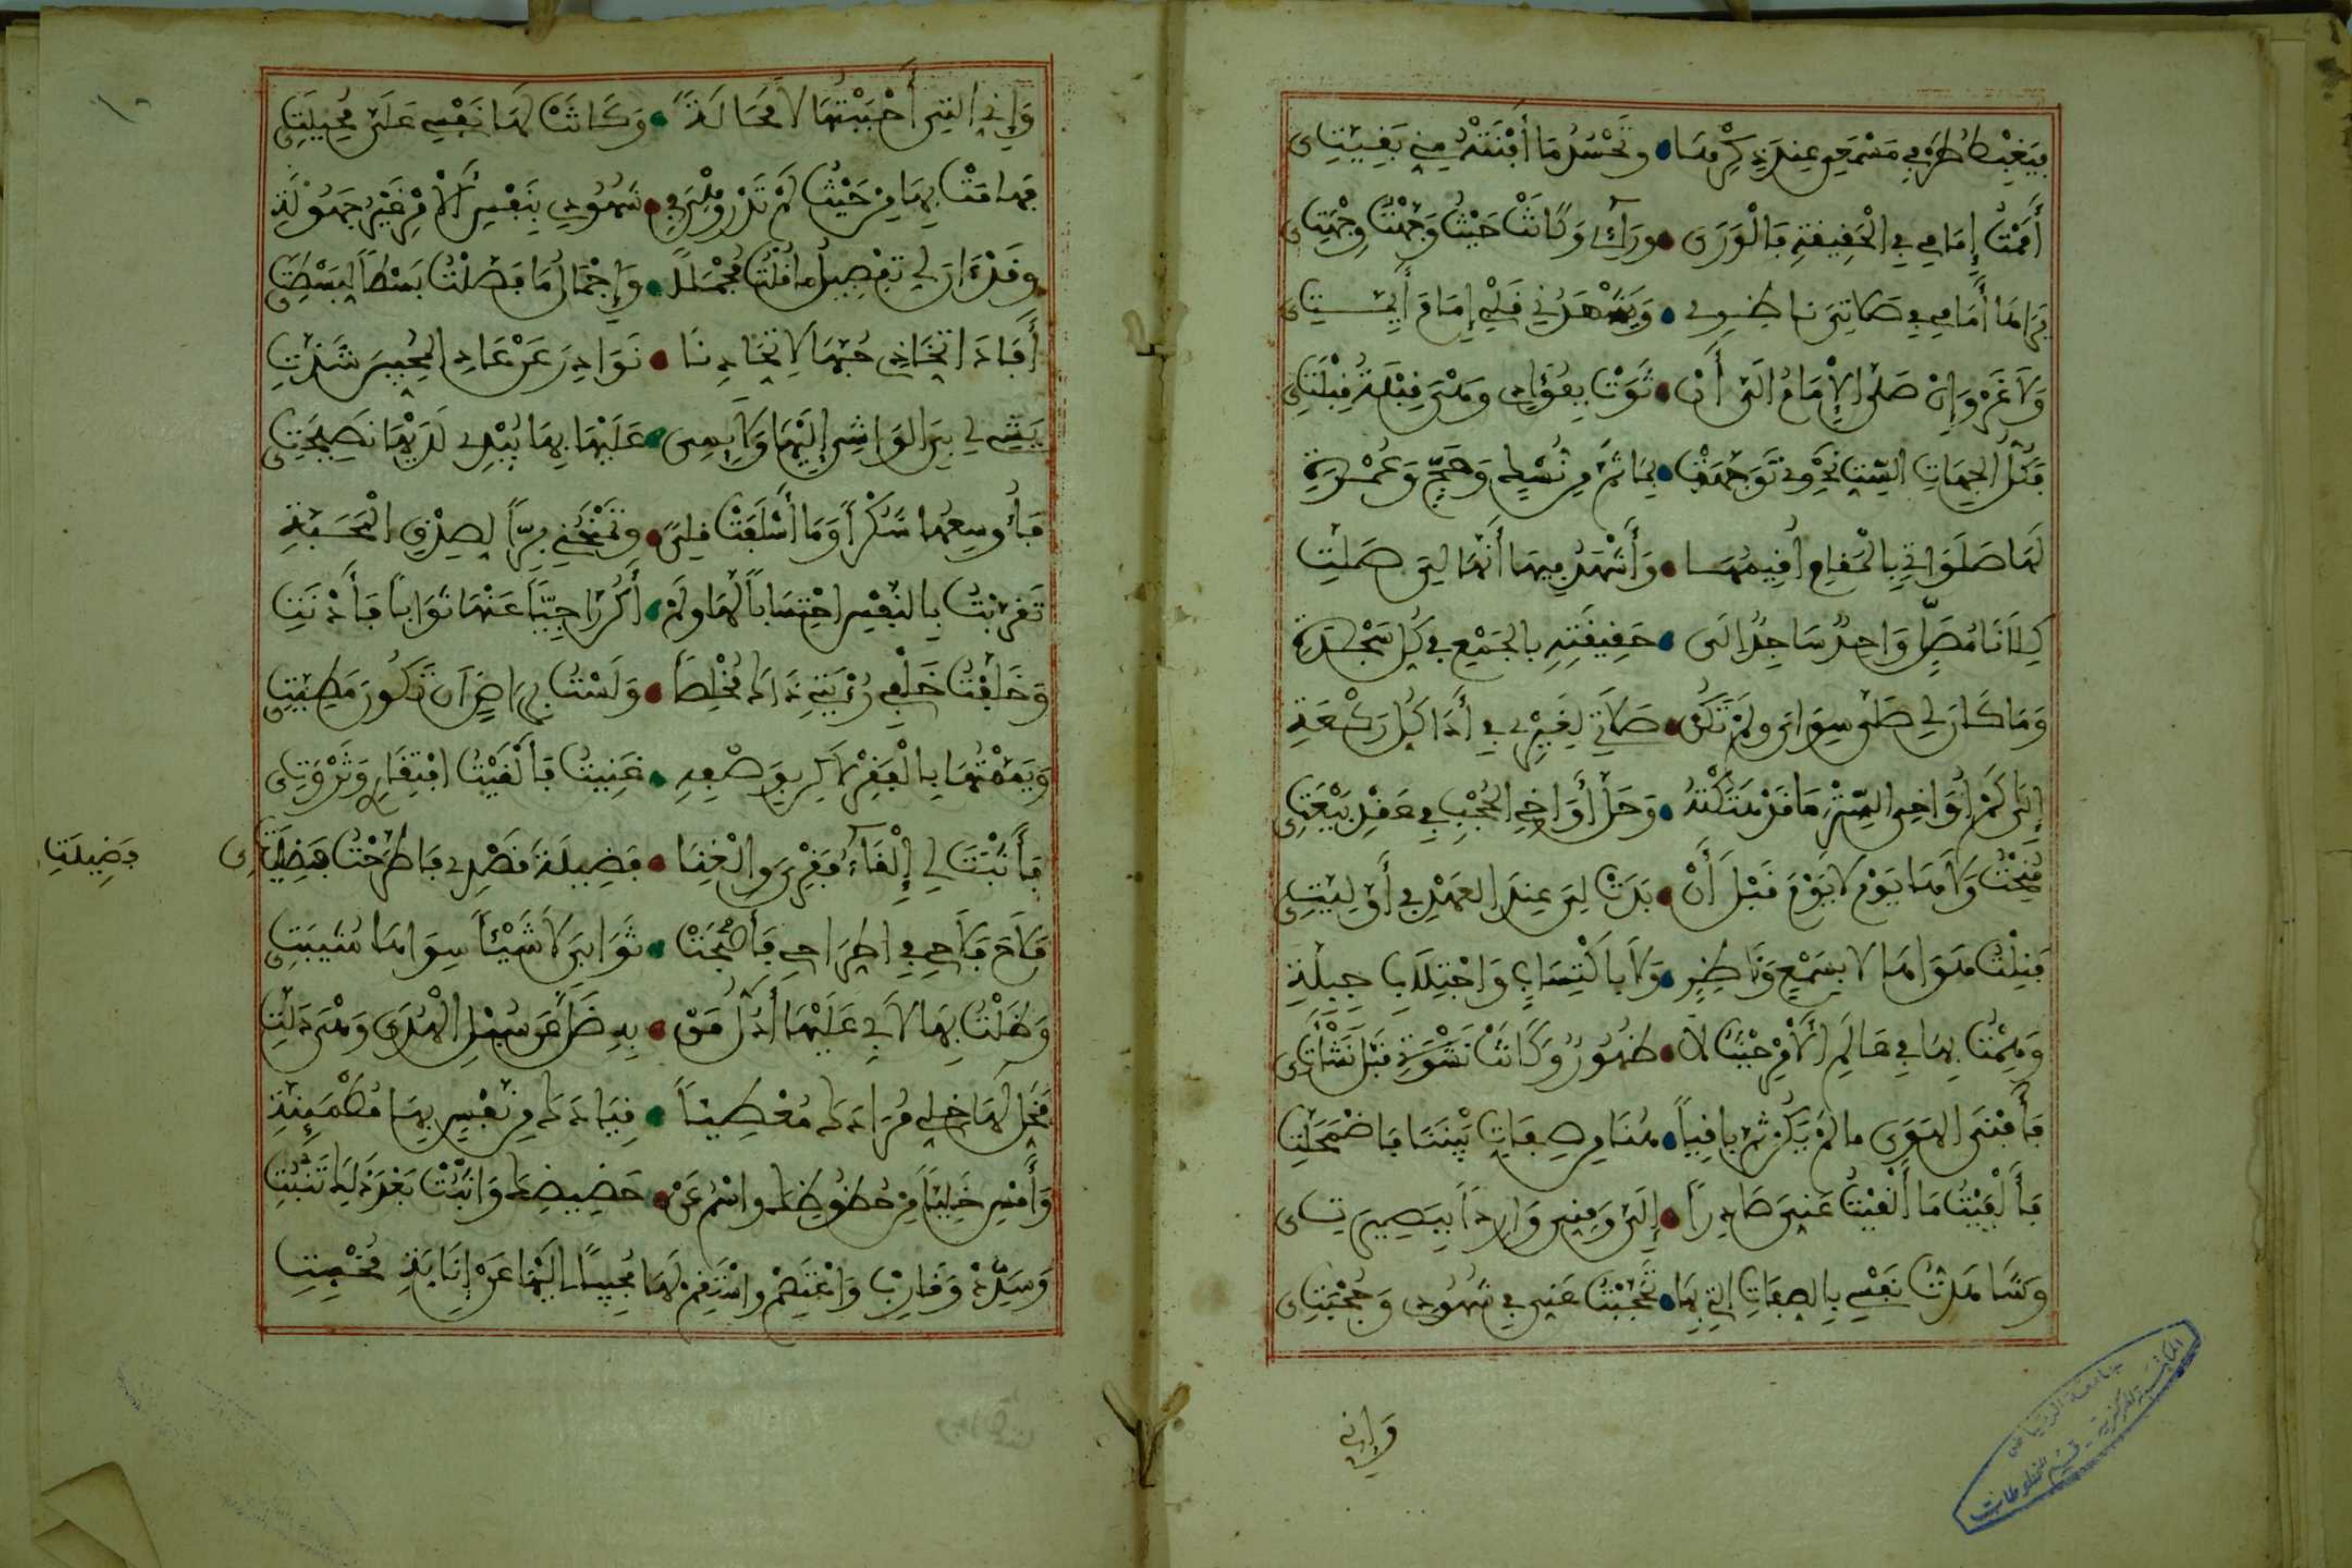 فيغبط طرفي مسمعي عند ذكرها • وتحسد ما أفنته مني بقيتي
أممت إمامي في الحقيقة فالورى • ورآئي وكانت حيث وجهت وجهتي
تراها أمامي في صلاتي ناظري • ويشهدني قلبي إمام أيمتي
ولا غرو إن صلى الإمام إلي أن • ثوت بفؤادي وهي قبلة قبلتي
فكل الجهات الست نحوي توجهت • بما ثم من نسك وحج وعمرة
لها صلواتي بالمقام أقيمها • وأشهد فيها أنها لي صلت
كلانا مصل واحد ساجد إلى • حقيقته بالجمع في كل سجدة
وما كان لي صلى سواي ولم تكن • صلاتي لغيري في أدا كل ركعة
إلى كم أواخي الستر ها قد هتكته • وحل أواخي الحجب في عقد بيعتي
منحت ولاها يوم لا يوم قبل أن • بدت لي عند العهد في أوليتي
فنلت هواها لا بسمع وناظر • ولا باكتساب واجتلاب جبلة
وهمت بها في عالم الأمر حيث لا • ظهور وكانت نشوتي قبل نشأتي
فأفنى الهوى ما لم يكن ثم باقيا • هنا من صفات بيننا فاضمحلت
فألفيت ما ألقيت عني صادرا • إلي ومني واردا بيصيرتي
وشاهدت نفسي بالصفات التي بها • تحجبت عني في شهودي وحجبتي
وإني
وإني التي أحببتها لا محالة • وكانت لها نفسي على محيلتي
فهامت بها من حيث لم تدر وهي في • شهودي بنفس الأمر غير جهولة
وقد ءان لي تفصيل ما قلت مجملا • وإجمال ما فصلت بسطا لبسطتي
أفاد اتخاذي حبها لاتحادنا • نوادر عن عاد المحبين شذت
يشي لي بي الواشي إليها ولائمي • عليها بها يبدي لديها نصيحتي
فأوسعها شكرا وما أسلفت قلى • وتمنحني برا لصدق المحبة
تقربت بالنفس احتسابا لها ولم • أكن راجيا عنها ثوابا فأدنت
وخلفت خلفي رؤيتي ذاك مخلصا • ولست براض أن تكون مطيتي
ويممتها بالفقر لاكن بوصفه • غنيت فألفيت افتقاري وثروتي
فأثبت لي إلقاء فقري والغنا • فضيلة قصدي فاطرحت فضيلتي
فضيلتي
فلاح فلاحي في اطراحي فأصبحت • ثوابي لا شيئا سواها مثيبتي
وظلت بها لا بي عليها أدل من • به ضل عن سبل الهدى وهي دلت
فخل لها خلي مرادك معطيا • قيادك من نفس بها مطمئنة
وأمس خليا من حظوظك واسم عن • حضيضك واثبت بعد ذلك تنبت
وسدد وقارب واعتصم واستقم لها مجيبا إليها عن إنابة مخبت
جامعة الرياض
المكتبة المركزية - قسم المخطوطات